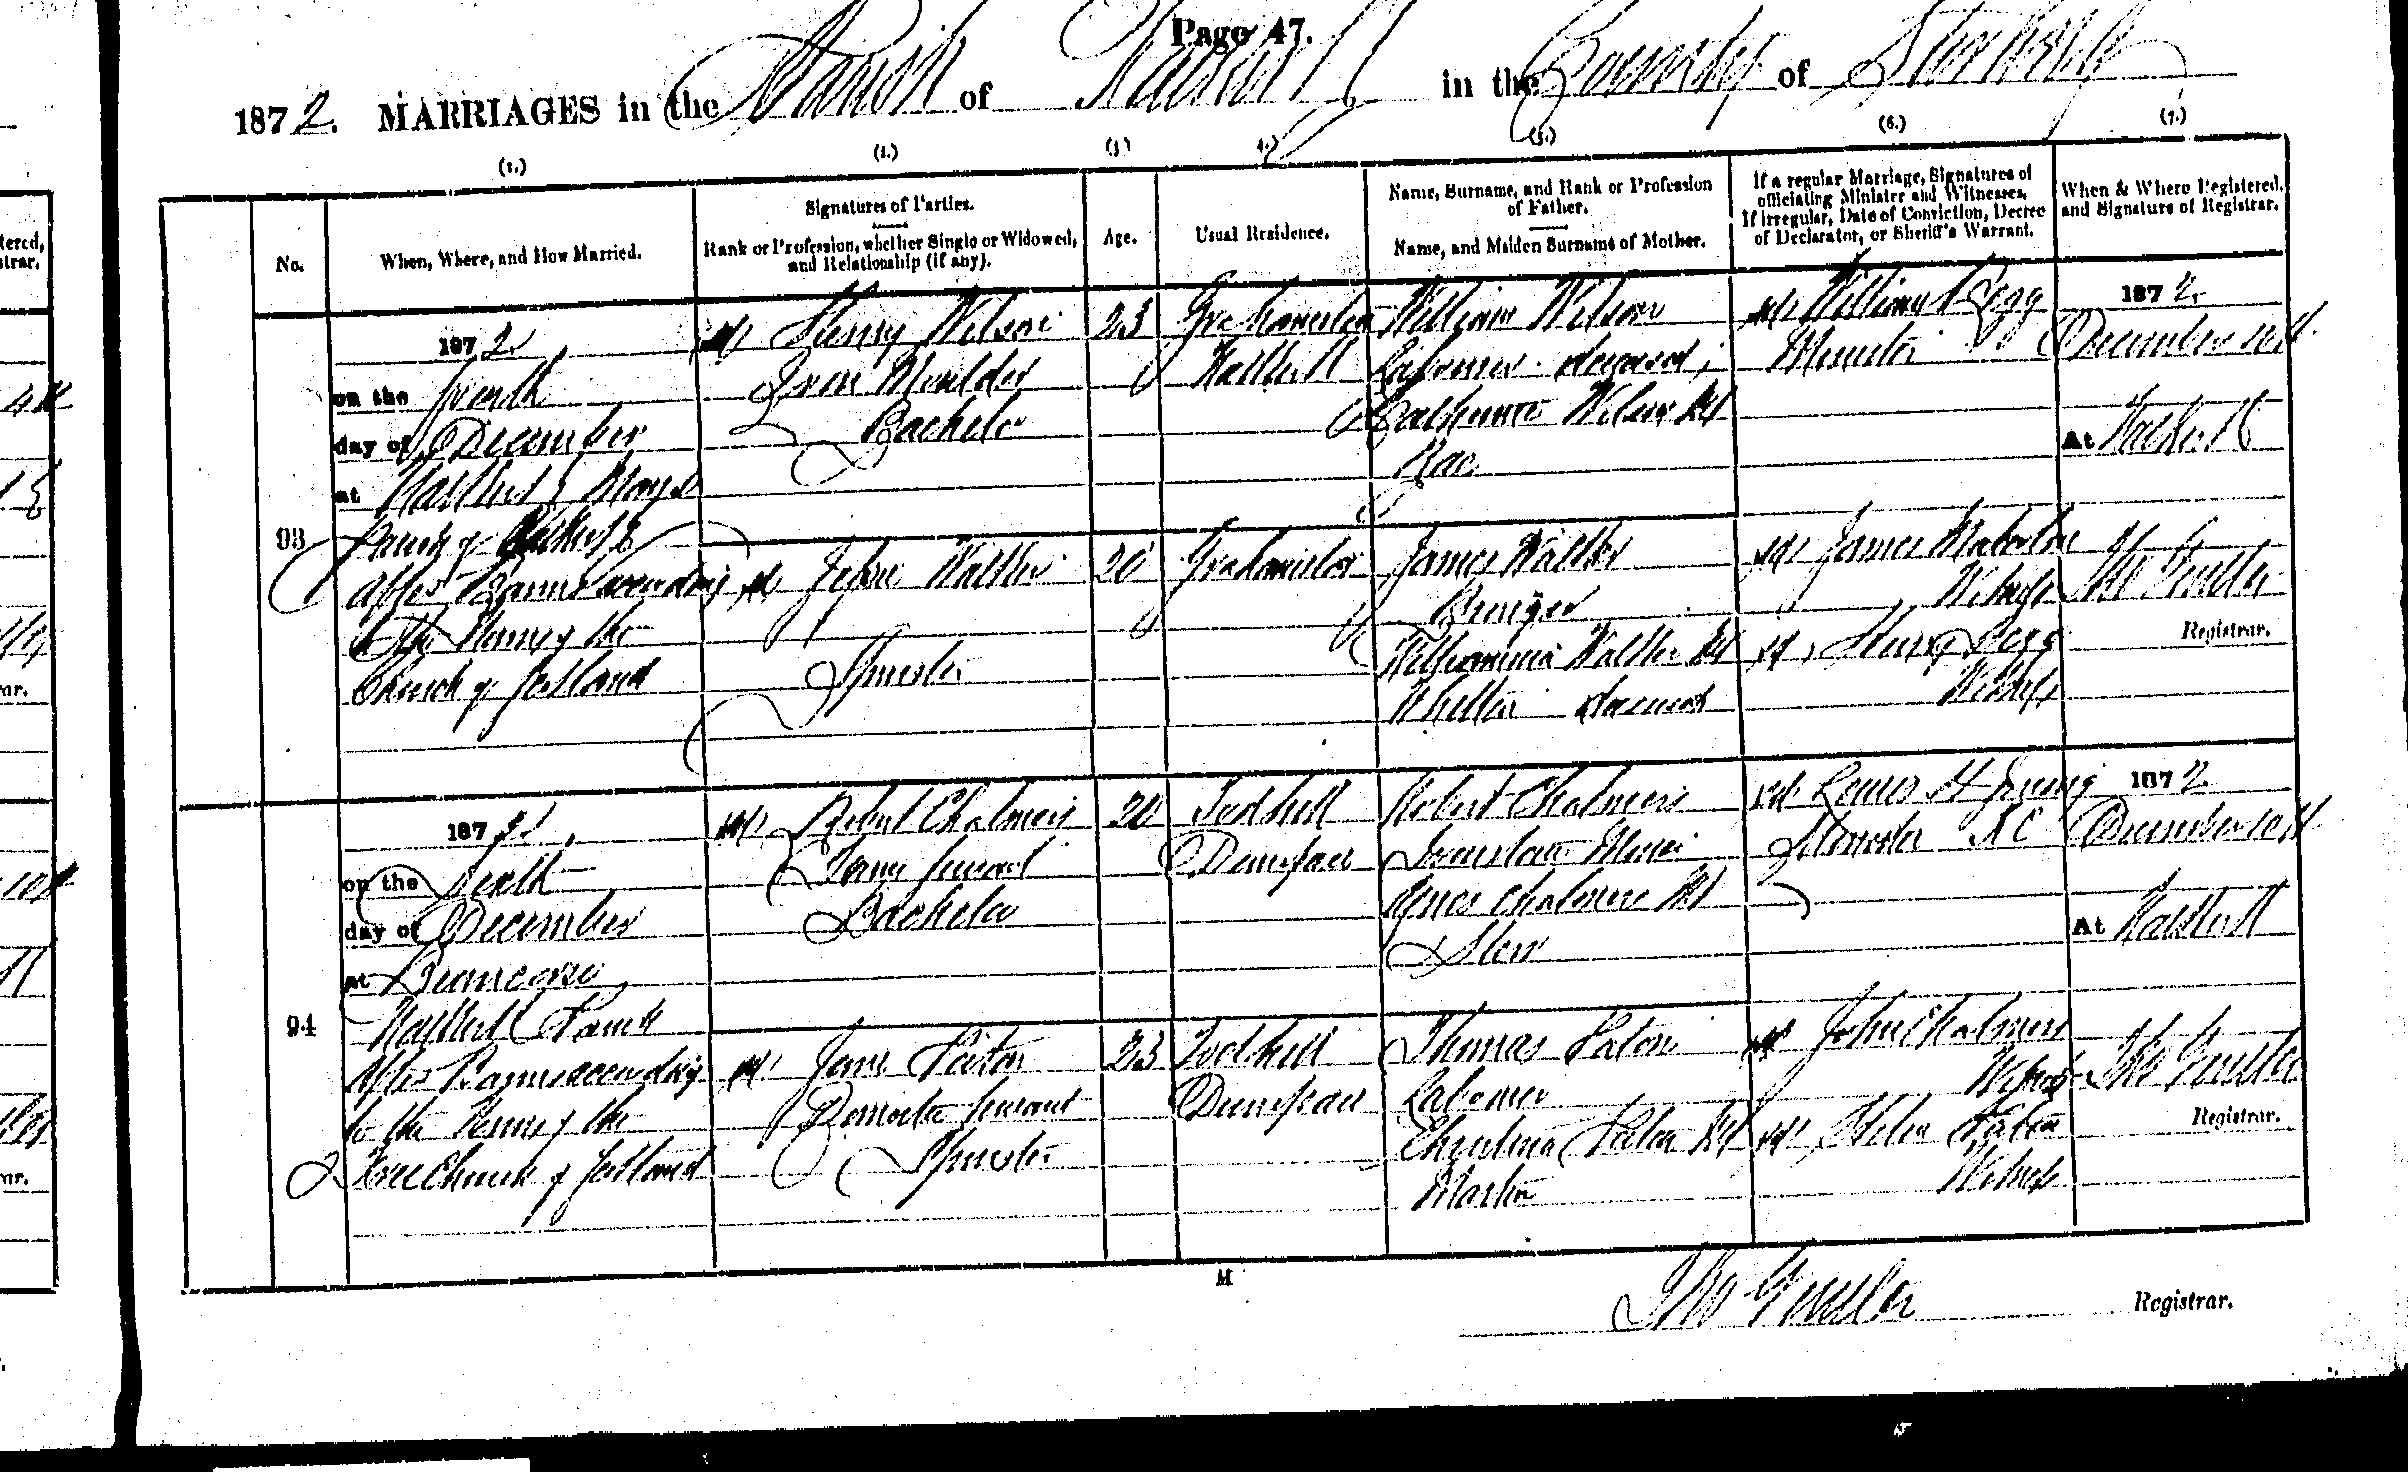 Page 47.
1872. MARRIAGES in the Parish of Falkirk in the County of Stirling
(1.) (2.) (3.) (4.) (5.) (6.) (7.)
No.
When, Where, and How Married.
Signatures of Parties.
Rank or Profession, whether Single or Widowed,
and Relationship (if any).
Age.
Usual Residence.
Name, Surname, and Rank or Profession
of Father.
Name, and Maiden Surname of Mother.
If a regular Marriage, Signatures of
officiating Minister and Witnesses.
If irregular, Date of Conviction, Decree
of Declarator, or Sheriff's Warrant.
When & Where Registered,
and Signature of Registrar.
93
1872
on the
day of December
at Falkirk
Parish of Falkirk
After Banns according
to the Forms of the
Church of Scotland
Henry Wilson
Iron Moulder
Bachelor
23
Grahamston
Falkirk
William Wilson
Labourer deceased
Catherine Wilson MS
Rae
William Begg
Minister
1872
December 10th
At Falkirk
Walker
Spinster
20
Grahamston
James Walker
Wilhelmina Walker MS
deceased
James Malcolm
Witness
Henry Begg
Witness
Registrar.
94
1872
on the Sixth
day of December
at
Falkirk Parish
After Banns according
to the Forms of the
Free Church of Scotland
Robert Chalmers
Farm Servant
Bachelor
20
Dunipace
Robert Chalmers
Agnes Chalmers MS
Minister F.C
1872
December 10th
At Falkirk
Jane Paton
Domestic Servant
Spinster
23
Dunipace
Thomas Paton
Labourer
Christina Paton MS
Martin
John Chalmers
Witness
Helen Paton
Witness
Registrar.
M
Registrar.